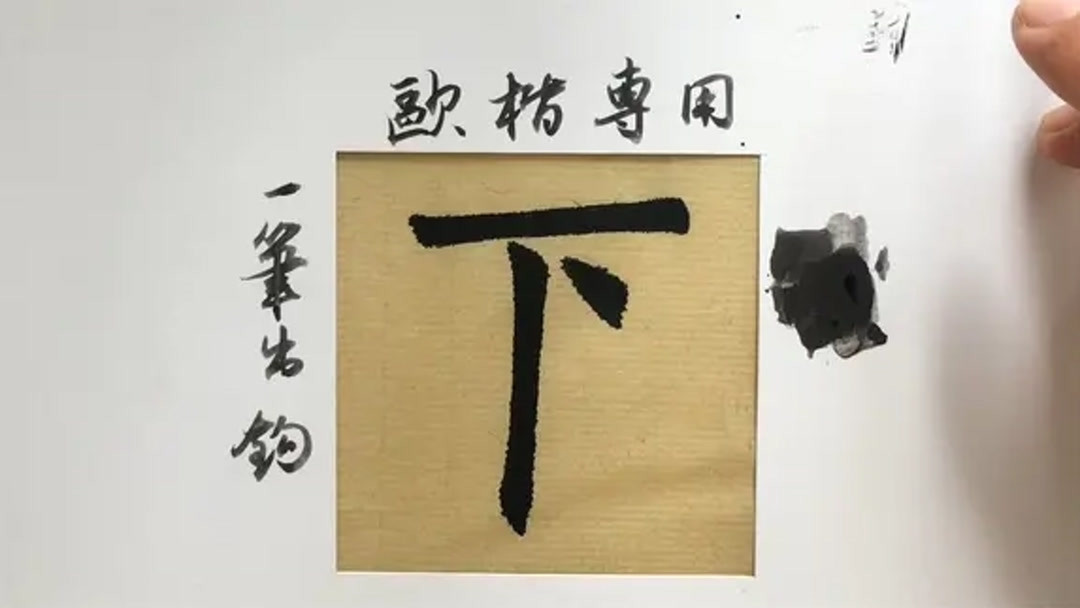 歐楷專用
一筆出鈎
下